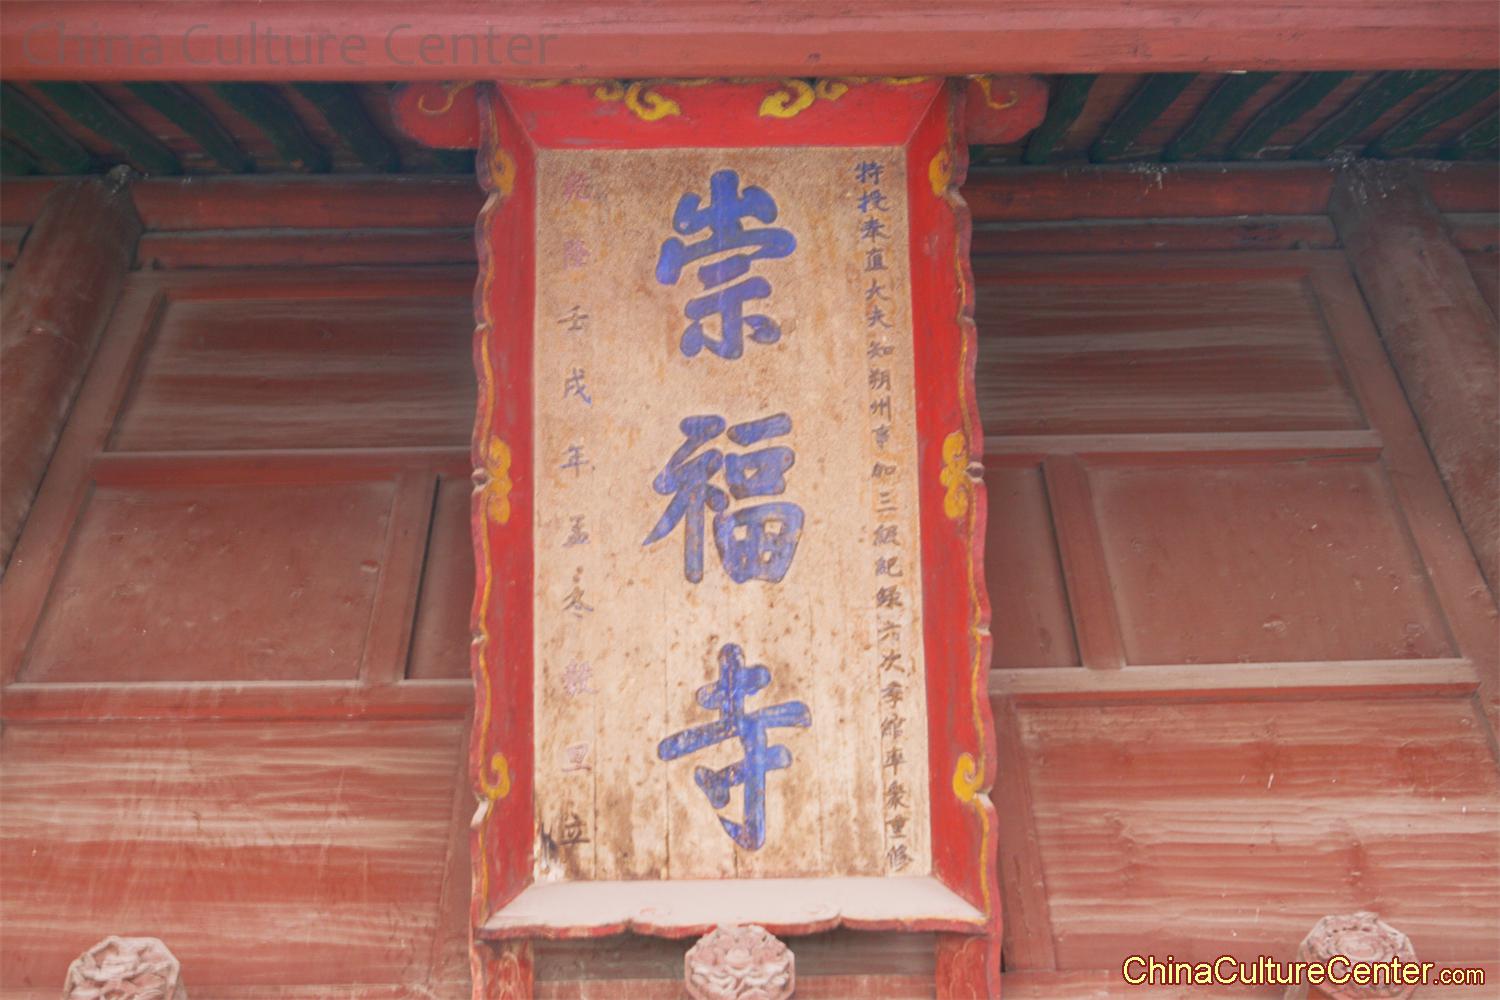 China Culture Center
特授奉直大夫知朔州事加三級紀錄六次李維率衆重修
崇福寺
乾隆壬戌年孟冬穀旦立
ChinaCultureCenter.com